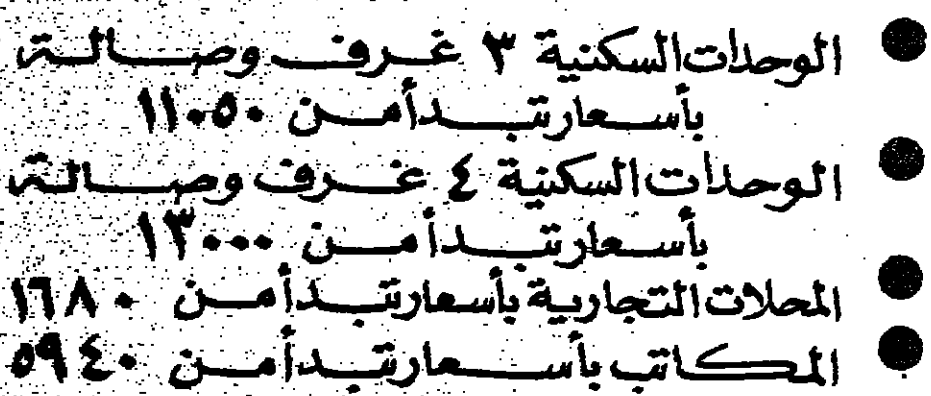 ● الوحدات السكنية ٣ غرف وصالة
بأسعار تبدأ من ١١٠٥٠
● الوحدات السكنية ٤ غرف وصالة
بأسعار تبدأ من ١٣٠٠٠
● المحلات التجارية بأسعار تبدأ من ١٦٨٠
● المكاتب بأسعار تبدأ من ٥٩٤٠